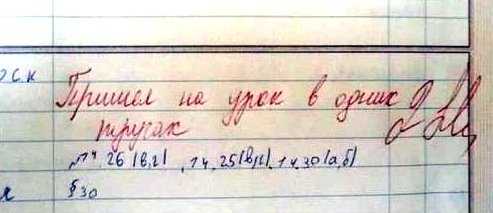 рск
Пришел на урок в одних
трусах
№14.26(в,г), 14.25(в,г), 14.30(а,б)
§30